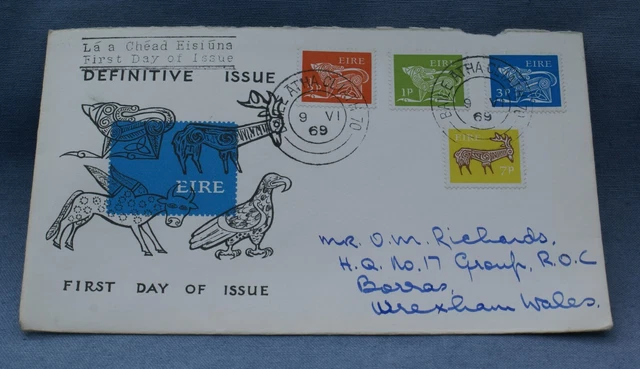 Lá a Chéad Eisiúna
First Day of Issue
DEFINITIVE ISSUE
EIRE
FIRST DAY OF ISSUE
EIRE
EIRE
1P
EIRE
3P
7P
BAILE ATHA
9 VI
69
BAILE ATHA
9 VI
69
Mr. O.M. Richards,
H.Q. No. 17 Group, R.O.C
Borras,
Wrexham Wales.